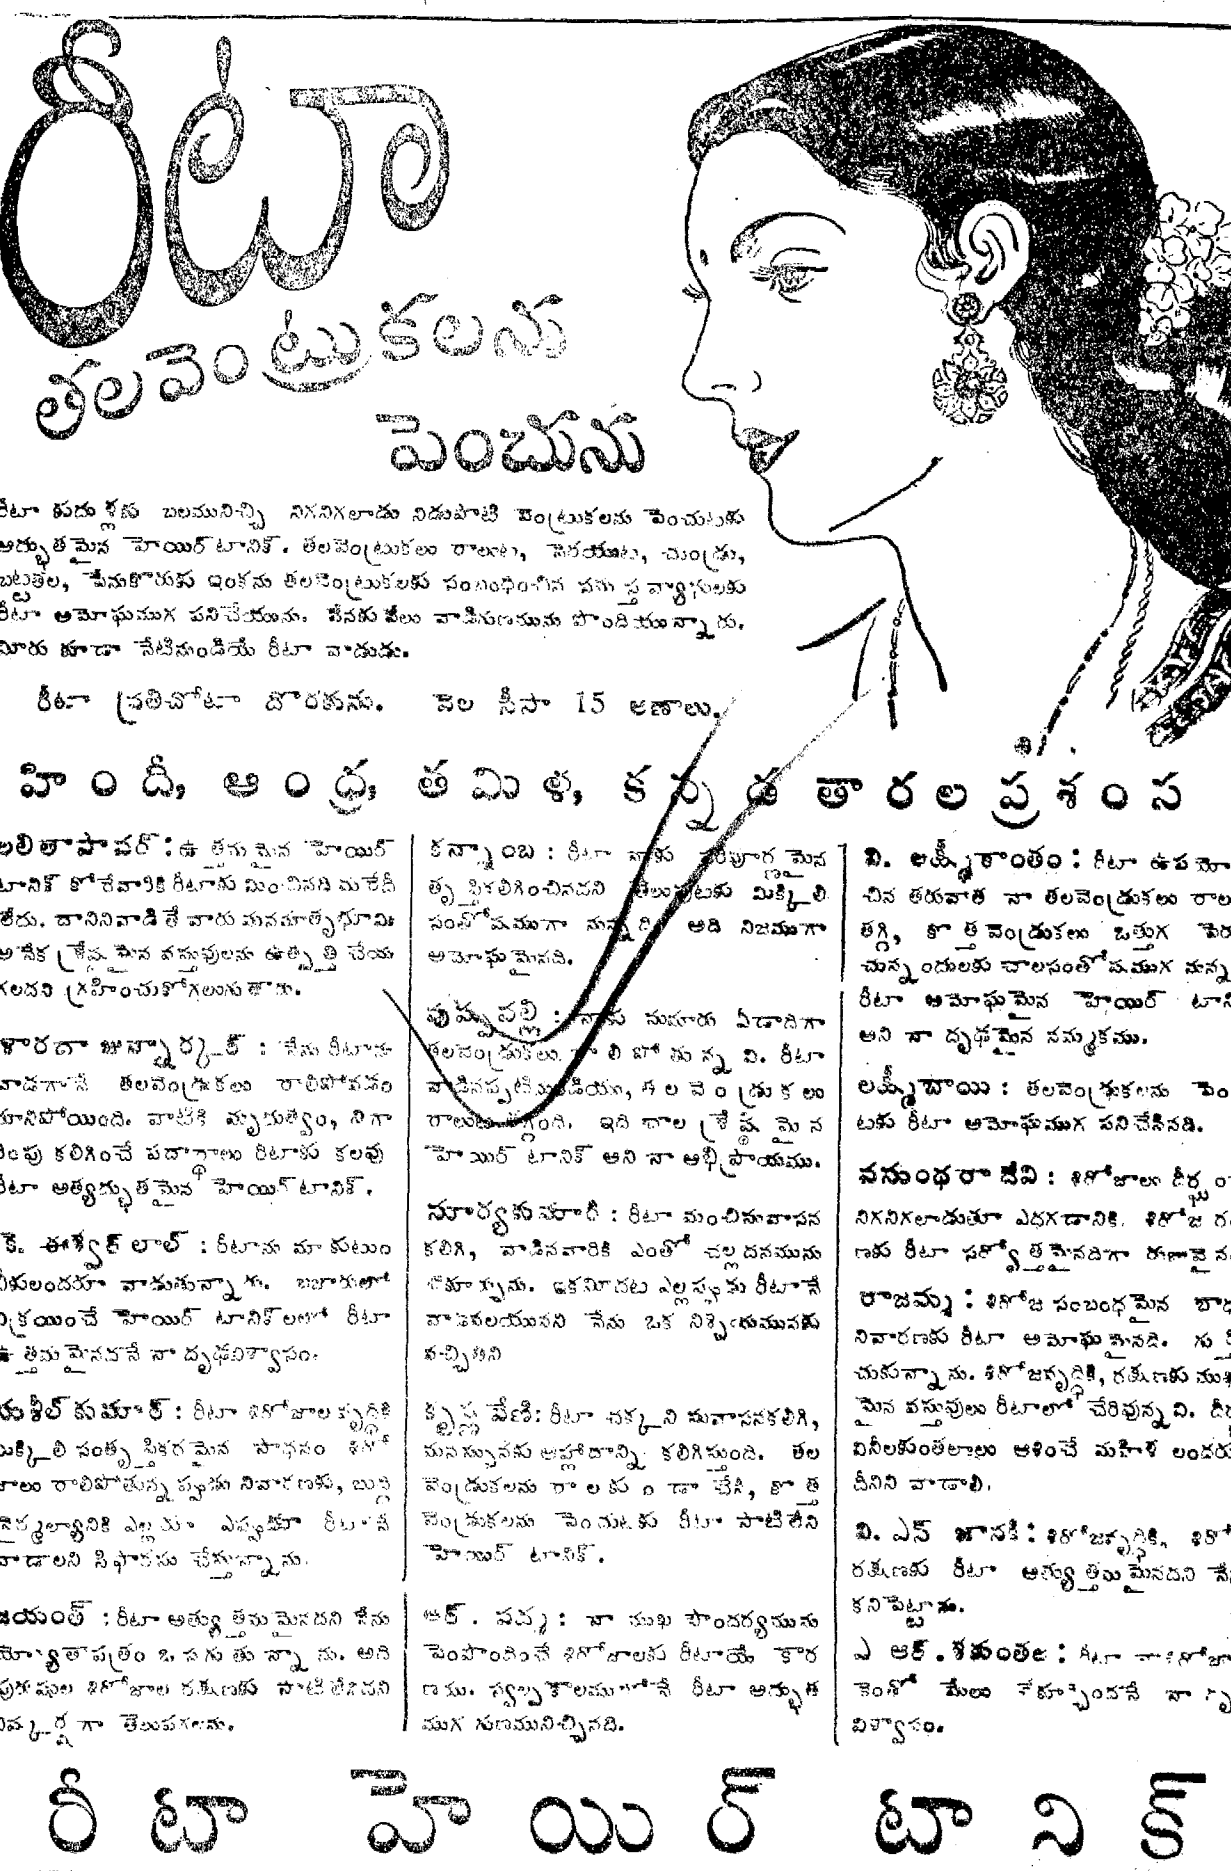 రీటా
తలవెంట్రుకలను
పెంచును
రీటా కుదుళ్లకు బలమునిచ్చి నిగనిగలాడు నిడుపాటి వెంట్రుకలను పెంచుటకు
అద్భుతమైన హెయిర్ టానిక్. తలవెంట్రుకలు రాలుట, నెరయుట, చుండ్రు,
బట్టతల, పేనుకొరుకు ఇంకను తలవెంట్రుకలకు సంబంధించిన సమస్త వ్యాధులకు
రీటా అమోఘముగ పనిచేయును. వేనకువేలు వాడిగుణమును పొందియున్నారు.
మీరు కూడా నేటినుండియే రీటా వాడుడు.
రీటా ప్రతిచోటా దొరకును. వెల సీసా 15 అణాలు.
హిందీ, ఆంధ్ర, తమిళ, కన్నడ తారల ప్రశంస
లలితాపవార్ : ఉత్తమమైన హెయిర్
టానిక్ కోరేవారికి రీటాకు మించినది మరేదీ
లేదు. దానినివాడితే వారు మనమాతృభూమి
అనేక శ్రేష్ఠమైన వస్తువులను ఉత్పత్తి చేయ
గలదని గ్రహించుకోగలుగుతారు.
శారదా జున్నార్కర్ : నేను రీటాను
వాడగానే తలవెండ్రుకలు రాలిపోవడం
మానిపోయింది. వాటికి మృదుత్వం, నిగా
రింపు కలిగించే పదార్థాలు రీటాకు కలవు
రీటా అత్యద్భుతమైన హెయిర్ టానిక్.
కె. ఈశ్వర్ లాల్ : రీటాను మా కుటుం
బీకులందరూ వాడుతున్నారు. బజారులో
విక్రయించే హెయిర్ టానిక్‌లలో రీటా
ఉత్తమమైనదనే నా దృఢవిశ్వాసం.
సుశీల్ కుమార్ : రీటా శిరోజాల వృద్ధికి
మిక్కిలి సంతృప్తికరమైన సాధనం శిరో
జాలు రాలిపోతున్నప్పుడు నివారణకు, బుర్ర
నైర్మల్యానికి ఎల్లరూ ఎప్పుడూ రీటానే
వాడాలని సిఫారసు చేస్తున్నాను.
జయంత్ : రీటా అత్యుత్తమమైనదని నేను
యోగ్యతాపత్రం ఒసగుతున్నాను. అది
పురుషుల శిరోజాల రక్షణకు సాటిలేనిదని
నిష్కర్షగా తెలుపగలను.
కన్నాంబ : రీటా నాకు పరిపూర్ణమైన
తృప్తికలిగించినదని తెలుపుటకు మిక్కిలి
సంతోషముగా నున్నది. అది నిజముగా
అమోఘమైనది.
పుష్పవల్లి : నాకు సుమారు ఏడాదిగా
తలవెండ్రుకలు రాలిపోతున్నవి. రీటా
వాడినప్పటినుండియు, తలవెండ్రుకలు
రాలుట తగ్గింది. ఇది చాల శ్రేష్ఠమైన
హెయిర్ టానిక్ అని నా అభిప్రాయము.
సూర్యకుమారి : రీటా మంచిసువాసన
కలిగి, వాడినవారికి ఎంతో చల్లదనమును
చేకూర్చును. ఇకమీదట ఎల్లప్పుడు రీటానే
వాడవలయునని నేను ఒక నిశ్చయమునకు
వచ్చితిని
కృష్ణవేణి: రీటా చక్కని సువాసనకలిగి,
మనస్సునకు ఆహ్లాదాన్ని కలిగిస్తుంది. తల
వెండ్రుకలను రాలకుండా చేసి, కొత్త
వెండ్రుకలను పెంచుటకు రీటా సాటిలేని
హెయిర్ టానిక్.
ఆర్. పద్మ : నా ముఖ సౌందర్యమును
పెంపొందించే శిరోజాలకు రీటాయే కార
ణము. స్వల్పకాలములోనే రీటా అద్భుత
ముగ గుణమునిచ్చినది.
వి. లక్ష్మీకాంతం : రీటా ఉపయో
చిన తరువాత నా తలవెండ్రుకలు రాల
తగ్గి, కొత్తవెండ్రుకలు ఒత్తుగ పెరు
చున్నందులకు చాలసంతోషముగ నున్న
రీటా అమోఘమైన హెయిర్ టాని
అని నా దృఢమైన నమ్మకము.
లక్ష్మీబాయి : తలవెండ్రుకలను పెం
టకు రీటా అమోఘముగ పనిచేసినది.
వసుంధరాదేవి : శిరోజాలు దీర్ఘం
నిగనిగలాడుతూ ఎదగడానికి, శిరోజ ర
ణకు రీటా సర్వోత్తమమైనదిగా రుజువై
రాజమ్మ : శిరోజ సంబంధమైన బాధ
నివారణకు రీటా అమోఘమైనది. గుర్తి
చుకున్నాను. శిరోజవృద్ధికి, రక్షణకు ముఖ
మైన వస్తువులు రీటాలో చేరివున్నవి. దీర్ఘ
వినీలకుంతలాలు ఆశించే మహిళలందరు
దీనిని వాడాలి.
వి. ఎన్ జానకి : శిరోజవృద్ధికి, శిరో
రక్షణకు రీటా అత్యుత్తమమైనదని నే
కనిపెట్టాను.
ఎ ఆర్. శకుంతల : రీటా నాశిరోజా
కెంతో మేలు చేకూర్చిందనే నా దృ
విశ్వాసం.
రీటా హెయిర్ టానిక్